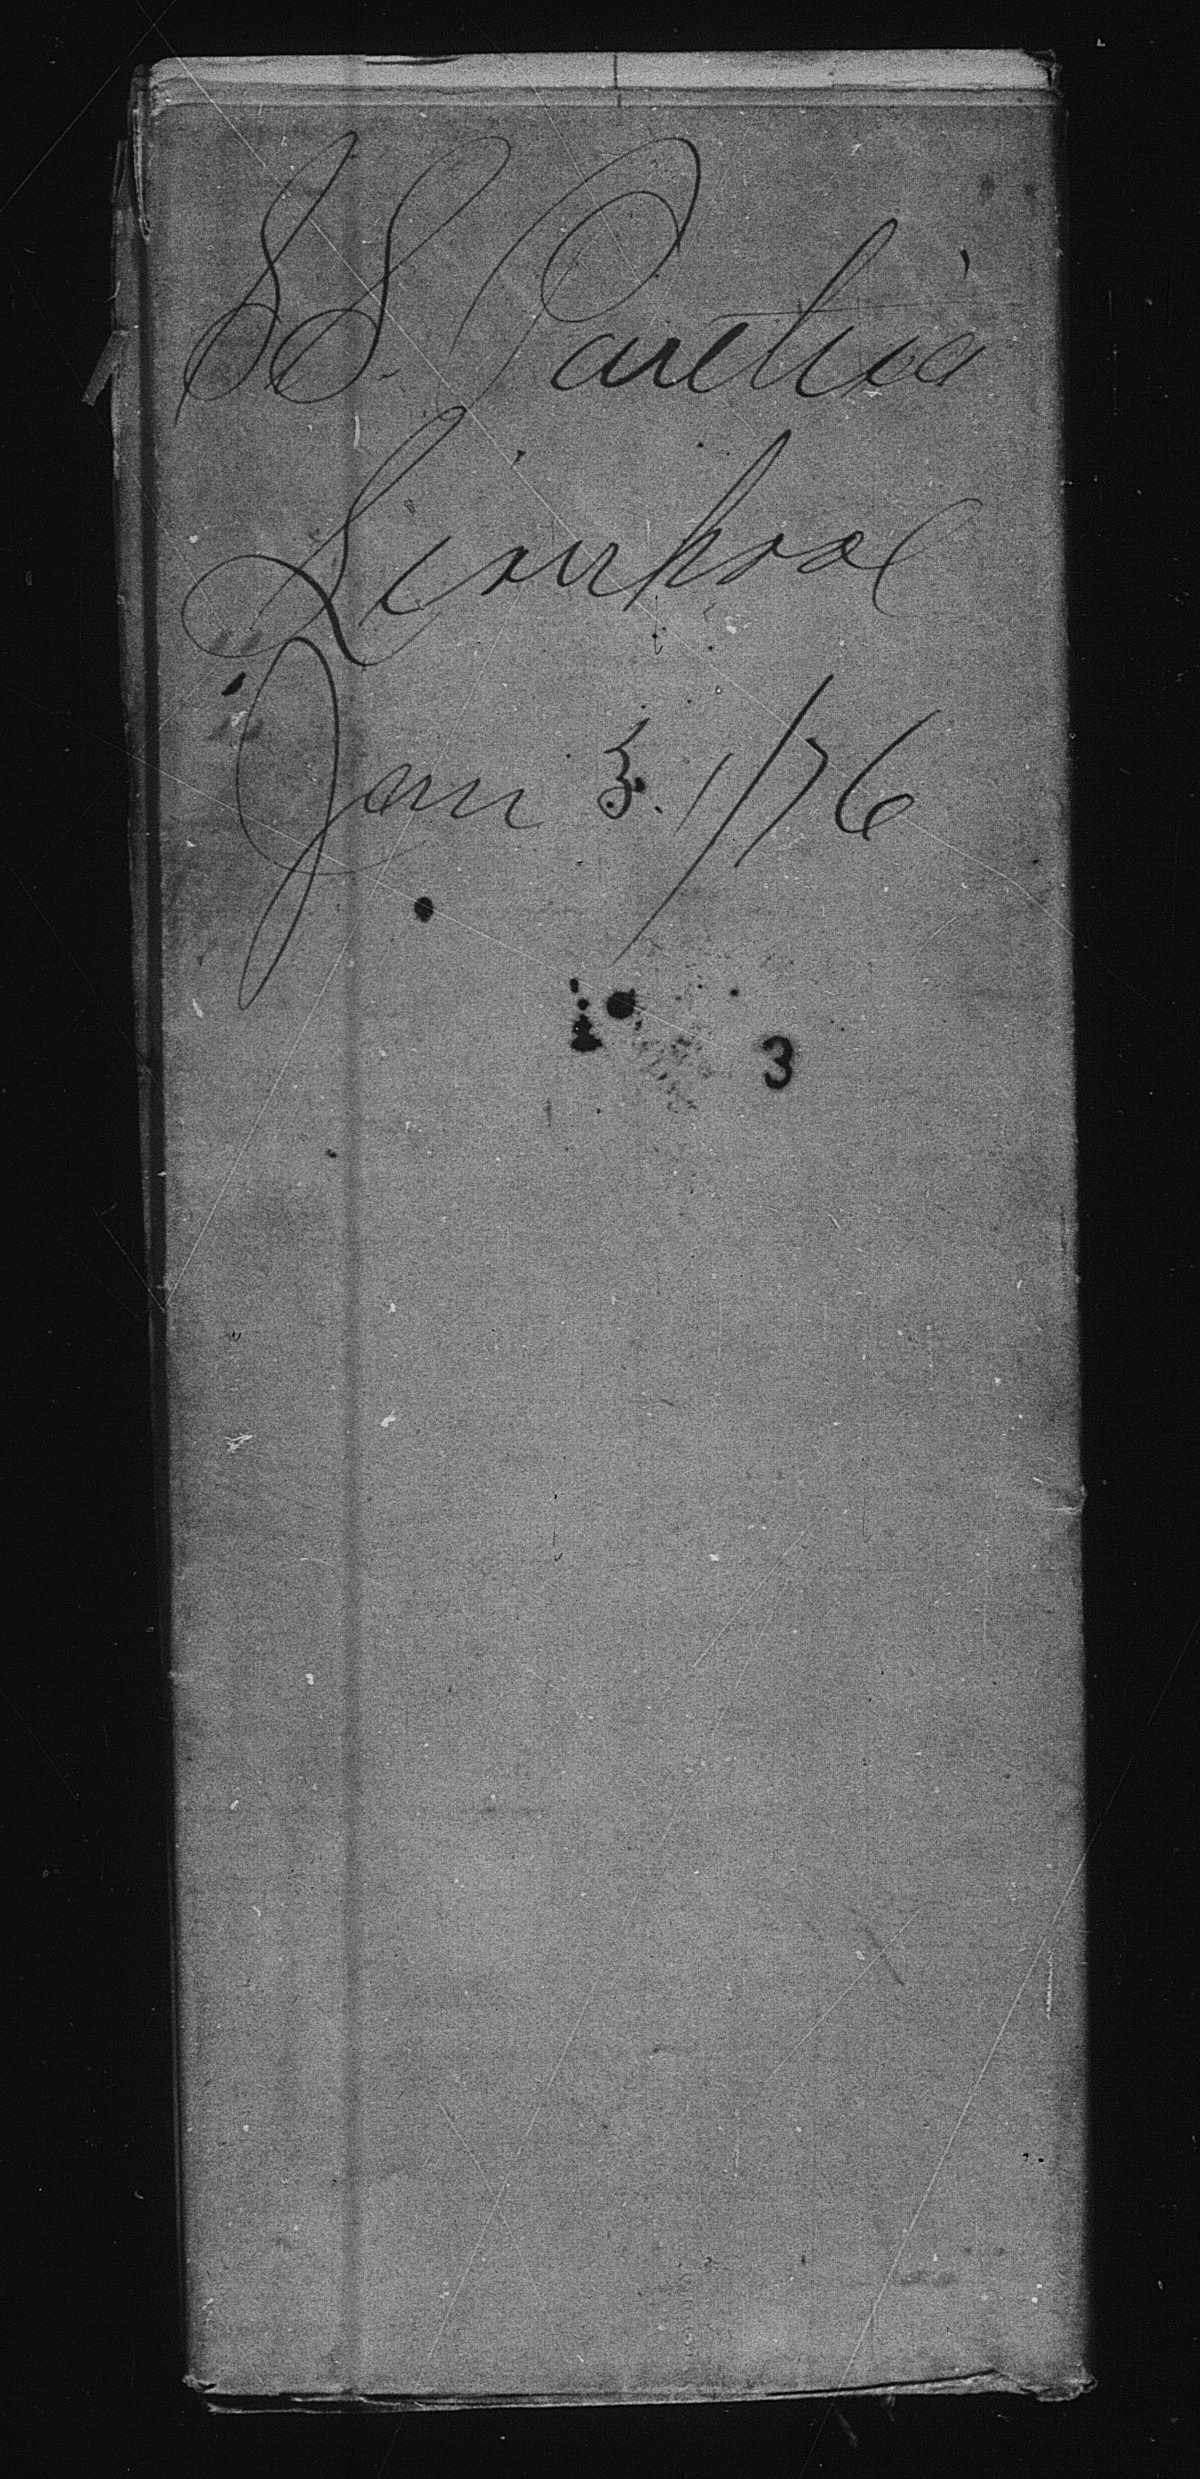 S.S. Parthia
Liverpool
Jan 3. 1/76
3